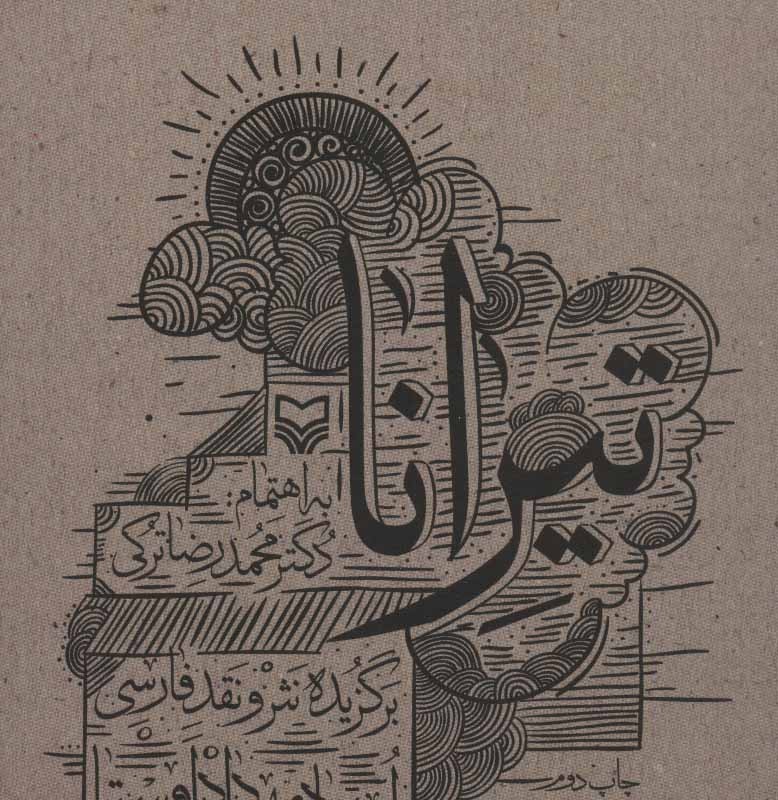 تیرانا
به اهتمام:
دکتر محمدرضا ترکی
برگزیدهٔ نثر و نقد فارسی
چاپ دوم